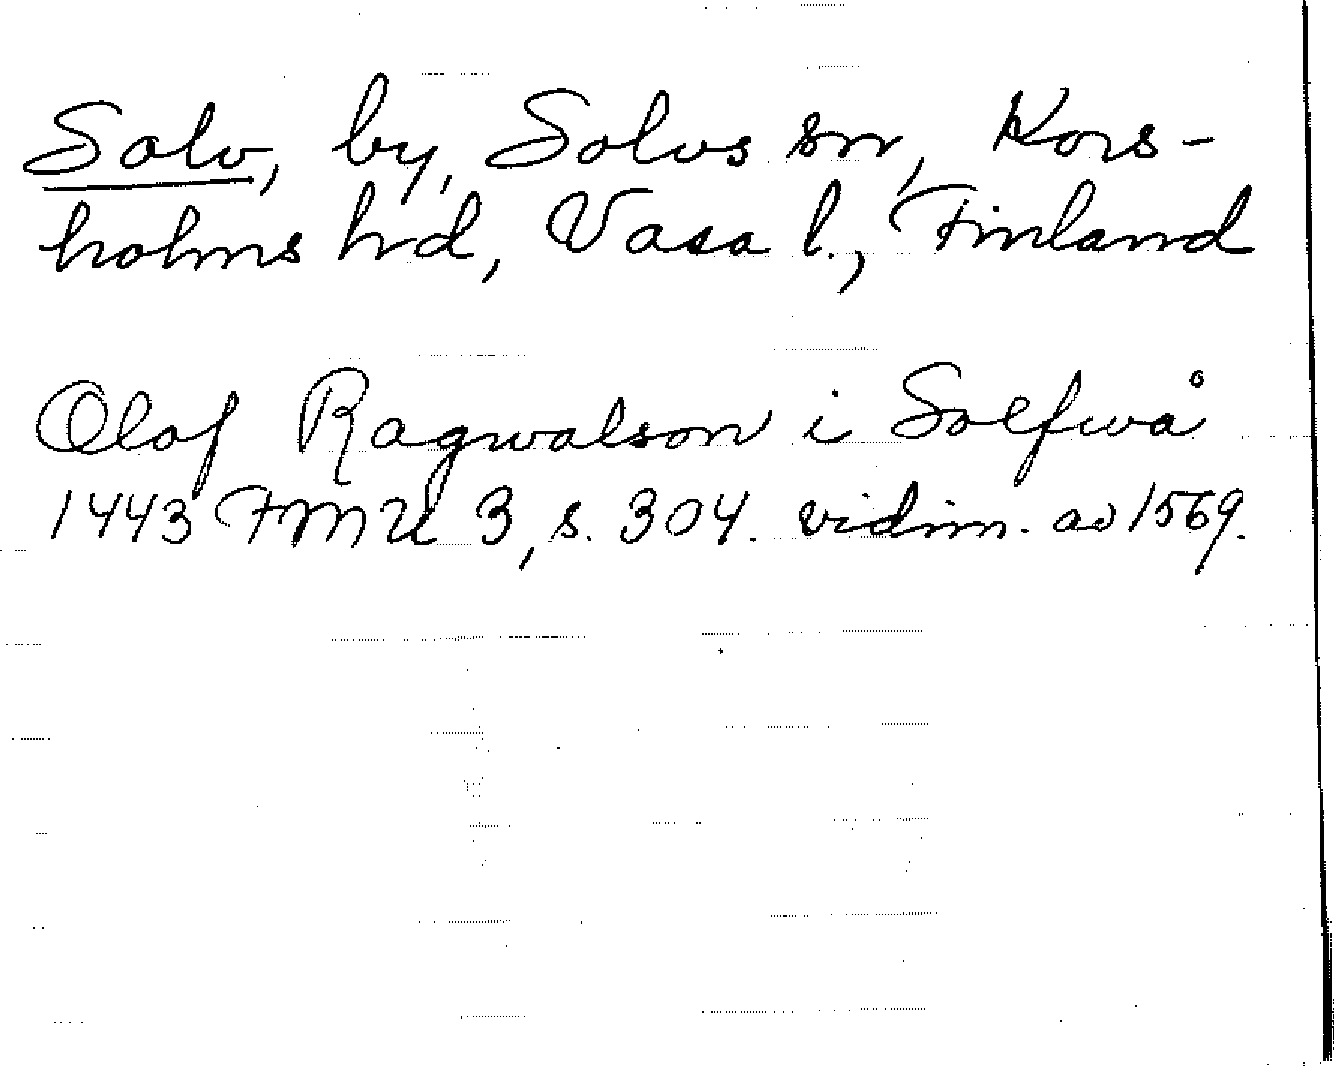 Solv, by, Solvs sn, Kors-
holms hd, Vasa l., Finland
Olof Ragwalson i Solfwå
1443 FMU 3, s. 304. vidim. av 1569.